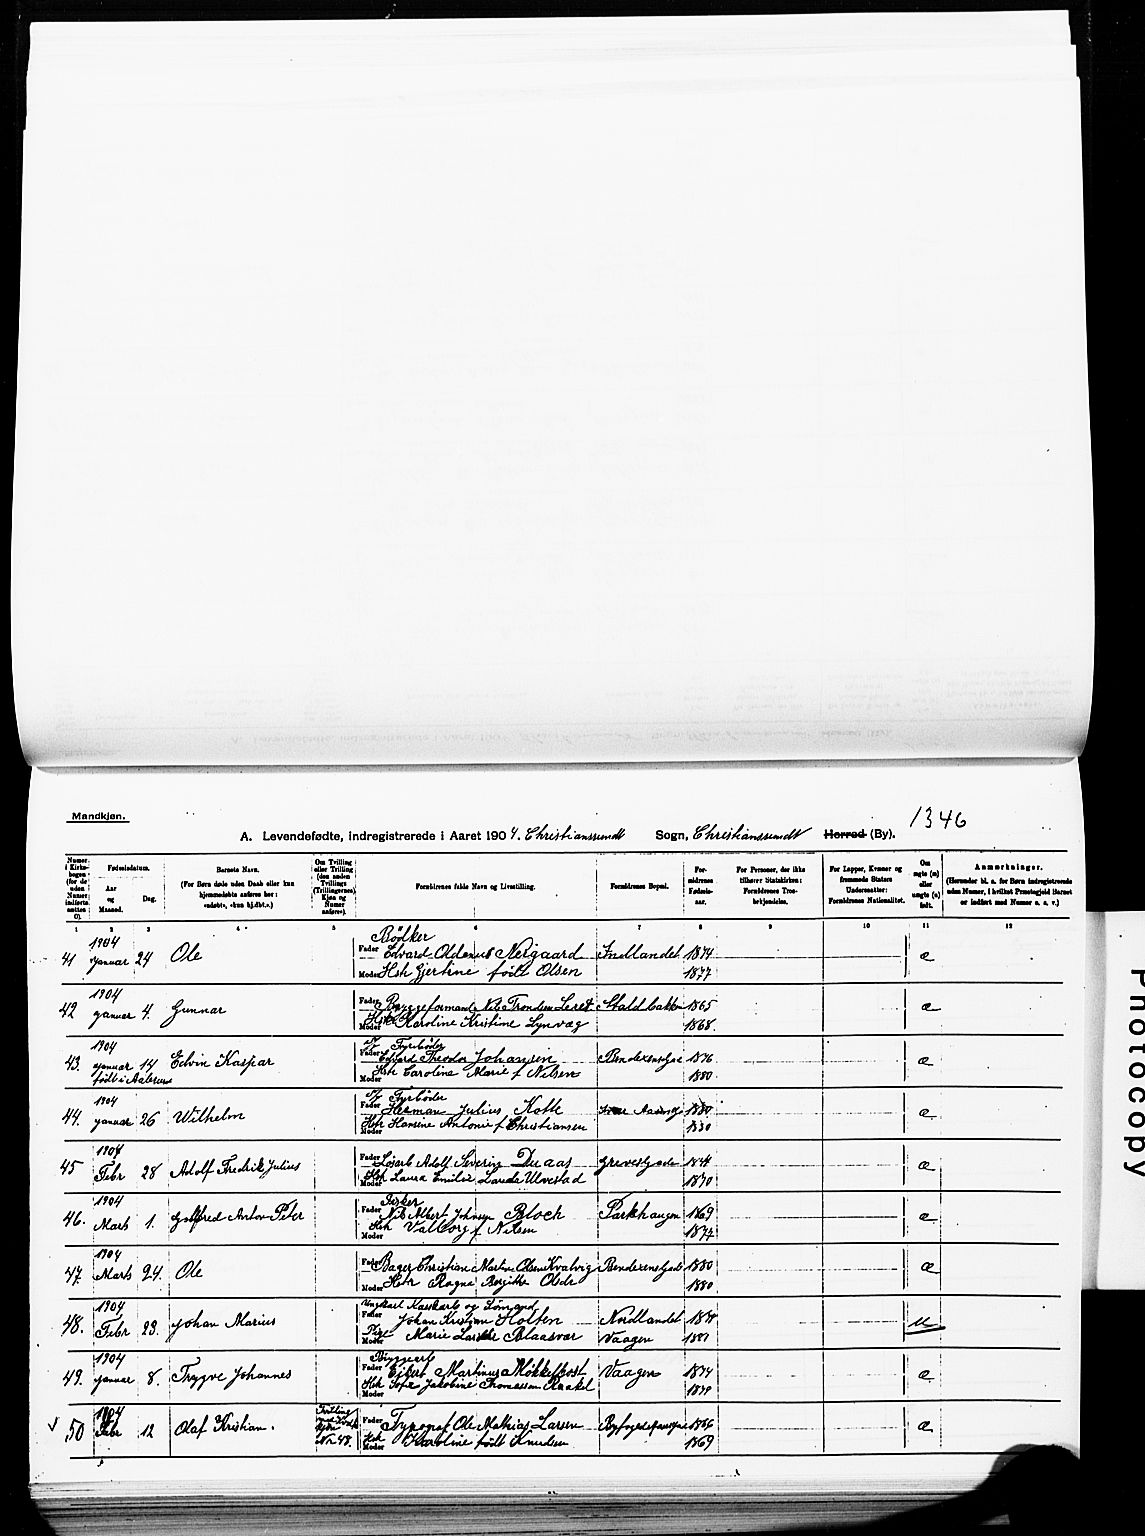 Mandkjøn.
1346
A. Levendefødte, indregistrerede i Aaret 1904. Christianssundt Sogn, Christianssundt Herred (By).
Numer i Kirkebogen (for de uden Numer indførte sættes 0).
Fødselsdatum.
Aar og Maaned.
Dag.
Barnets Navn.
(For Børn døde uden Daab eller kun hjemmedøbte anføres her: «udøbt», «kun hj.dbt.».)
Om Tvilling eller Trilling (den anden Tvillings (Trillingernes) Kjøn og Numer anføres).
Forældrenes fulde Navn og Livsstilling.
Forældrenes Bopæl.
Forældrenes Fødselsaar.
For Personer, der ikke tilhører Statskirken: Forældrenes Trosbekjendelse.
For Lapper, Kvæner og fremmede Staters Undersaatter: Forældrenes Nationalitet.
Om ægte (æ) eller uægte (u) født.
Anmærkninger.
(Herunder bl. a. for Børn indregistrerede uden Numer, i hvilket Præstegjeld Barnet er indført med Numer o. s. v.)
1 2 3 4 5 6 7 8 9 10 11 12
41 1904 Januar 24 Ole
Bødker
Fader Edvard Oldenus Neigaard Indlandet 1874 æ
Moder Hstr Gjertine født Olsen 1877
42 1904 Januar 4. Gunnar
Fader Bryggeformand Nils Trondsen Leret Staldbakken 1865 æ
Moder Hstr Karoline Kristine Lynvæg 1868.
43. 1904 Januar 14 Edvin Kaspar
født i Aalesund
Fyrbøder
Fader Edvard Theodor Johansen Bendixensgd 1876 æ
Moder Hstr Caroline Marie f Nilsen 1880.
44. 1904 Januar 26 Wilhelm
Fyrbøder
Fader Herman Julius Kotte 1880 æ
Moder Hstr Hansine Antonie f Christiansen 1880
45 1904 Febr 28 Adolf Fredrik Julius
Fader Adolf Severin Duaas Grevesgade æ
Moder Hstr Laura Emilie Ulvestad 1870
46. 1904 Mars 1. Anton Peter
Fisker
Fader Nils Albert Johnsen Bloch Parkhaugen 1869 æ
Moder Hstr Valborg f Nilsen 1877
47. 1904 Marts 24. Ole
Fader Bager Christian Martin Olsen Kvalvig Bendixensgade 1880 æ
Moder Hstr Ragna Bergitte Olsdr 1880
48. 1904 Febr 23. Johan Marius
Ungkarl og Sømand
Fader Johan Kristian Holten Nordlandet u
Moder Pige Marie Blaasvær Vaagen 1881
49. 1904 Januar 8. Trygve Johannes
Bryggearb
Fader Martinus Mökkelbost Vaagen 1874 æ
Moder Hstr Sofie Jakobine Thomassen
√ 50 1904 Febr 12 Olaf Kristian.
No 48.
Fader Typograf Ole Mathias Larsen 1866 æ
Moder Hstr Karoline født Knudsen 1869
Photocopy